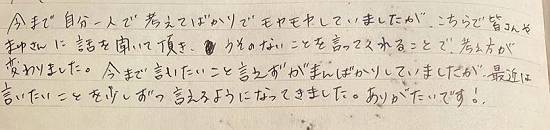 今まで自分一人で考えてばかりでモヤモヤしていましたが、こちらで皆さんや
まゆさんに話を聞いて頂き、うそのないことを言ってくれることで、考え方が
変わりました。今まで言いたいこと言えずがまんばかりしていましたが、最近は
言いたいことを少しずつ言えるようになってきました。ありがたいです!